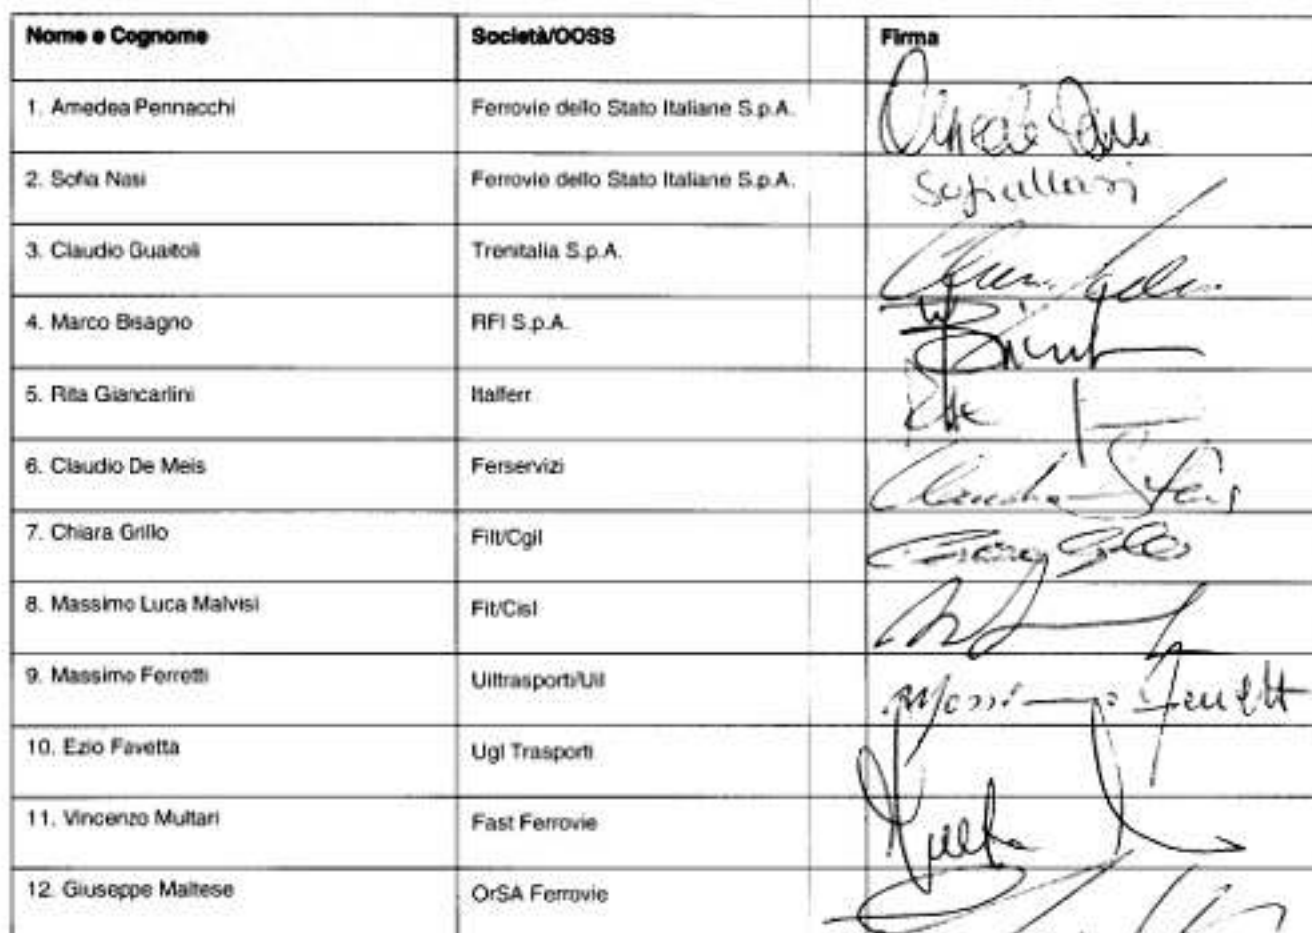 Nome e Cognome Società/OOSS Firma
1. Amedea Pennacchi Ferrovie dello Stato Italiane S.p.A.
2. Sofia Nasi Ferrovie dello Stato Italiane S.p.A. Sofia Nasi
3. Claudio Guaitoli Trenitalia S.p.A.
4. Marco Bisagno RFI S.p.A.
5. Rita Giancarlini Italferr
6. Claudio De Meis Ferservizi
7. Chiara Grillo Filt/Cgil Chiara Grillo
8. Massimo Luca Malvisi Fit/Cisl
9. Massimo Ferretti Uiltrasporti/Uil Massimo Ferretti
10. Ezio Favetta Ugl Trasporti
11. Vincenzo Multari Fast Ferrovie
12. Giuseppe Maltese OrSA Ferrovie